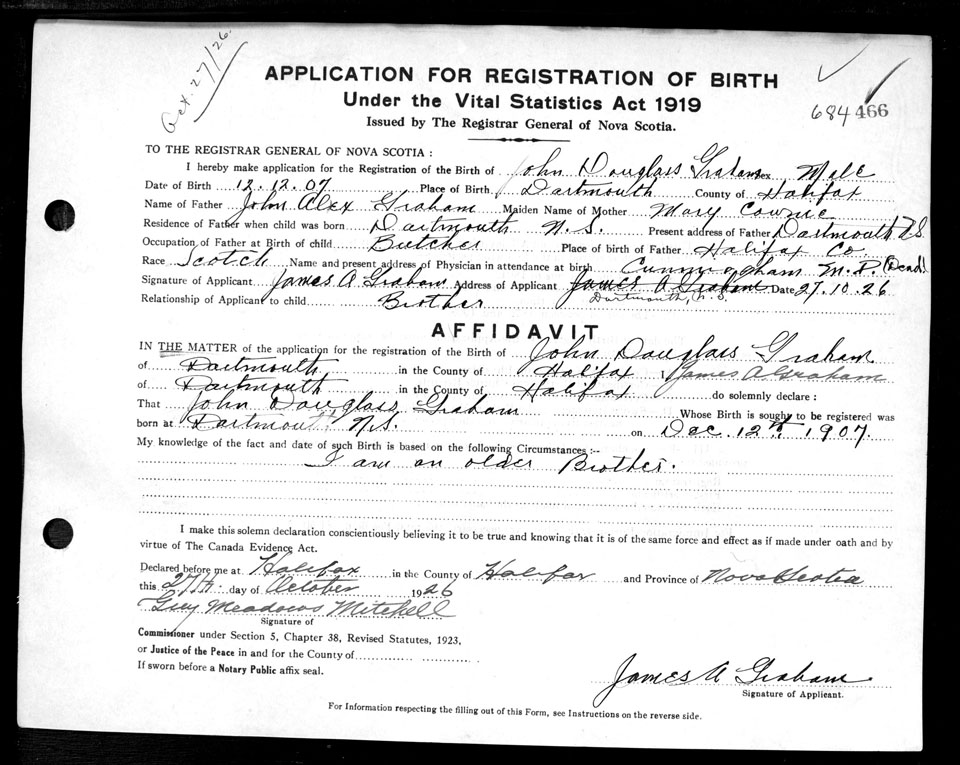 Oct. 27/26.
APPLICATION FOR REGISTRATION OF BIRTH
Under the Vital Statistics Act 1919
Issued by The Registrar General of Nova Scotia.
684 466
TO THE REGISTRAR GENERAL OF NOVA SCOTIA :
I hereby make application for the Registration of the Birth of John Douglass Graham Sex Male
Date of Birth 12.12.07 Place of Birth Dartmouth County of Halifax
Name of Father John Alex Graham Maiden Name of Mother Mary Cownie
Residence of Father when child was born Dartmouth N.S. Present address of Father Dartmouth N.S.
Occupation of Father at Birth of child Butcher Place of birth of Father Halifax Co.
Race Scotch Name and present address of Physician in attendance at birth Cunningham M.D. (Dead)
Signature of Applicant James A Graham Address of Applicant James A Graham Date 27.10.26
Dartmouth, N.S.
Relationship of Applicant to child Brother
AFFIDAVIT
IN THE MATTER of the application for the registration of the Birth of John Douglass Graham
of Dartmouth in the County of Halifax I James A Graham
of Dartmouth in the County of Halifax do solemnly declare :
That John Douglass Graham Whose Birth is sought to be registered was
born at Dartmouth N.S. on Dec. 12th 1907.
My knowledge of the fact and date of such Birth is based on the following Circumstances :--
I am an older Brother.
I make this solemn declaration conscientiously believing it to be true and knowing that it is of the same force and effect as if made under oath and by
virtue of The Canada Evidence Act.
Declared before me at Halifax in the County of Halifax and Province of Nova Scotia
this 27th day of October 1926
Guy Meadows Mitchell
Signature of
Commissioner under Section 5, Chapter 38, Revised Statutes, 1923.
or Justice of the Peace in and for the County of
If sworn before a Notary Public affix seal.
James A Graham
Signature of Applicant.
For Information respecting the filling out of this Form, see Instructions on the reverse side.